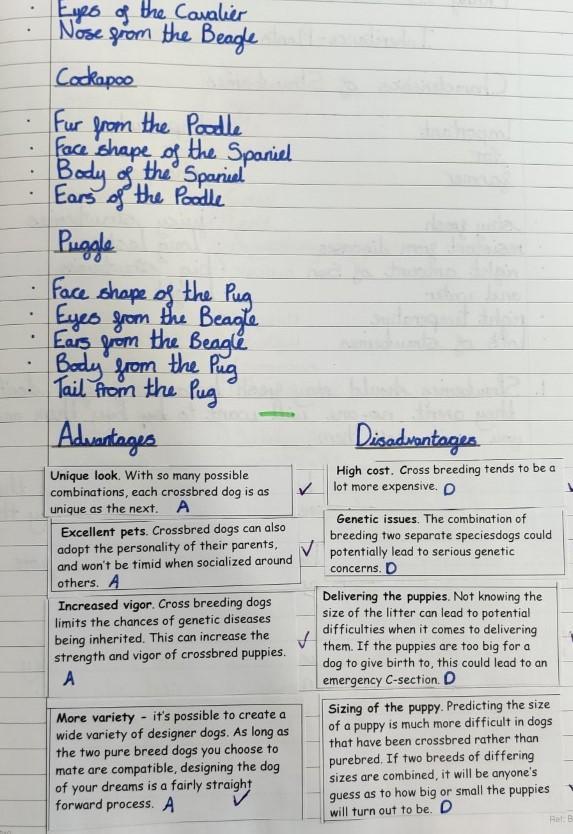 Eyes of the Cavalier
Nose from the Beagle
Cockapoo
Fur from the Poodle
Face shape of the Spaniel
Body of the Spaniel
Ears of the Poodle
Puggle
Face shape of the Pug
Eyes from the Beagle
Ears from the Beagle
Body from the Pug
Tail from the Pug
Advantages
Unique look. With so many possible
combinations, each crossbred dog is as
unique as the next. A
Excellent pets. Crossbred dogs can also
adopt the personality of their parents,
and won't be timid when socialized around
others. A
Increased vigor. Cross breeding dogs
limits the chances of genetic diseases
being inherited. This can increase the
strength and vigor of crossbred puppies.
A
More variety - it's possible to create a
wide variety of designer dogs. As long as
the two pure breed dogs you choose to
mate are compatible, designing the dog
of your dreams is a fairly straight
forward process. A
Disadvantages
High cost. Cross breeding tends to be a
lot more expensive. D
Genetic issues. The combination of
breeding two separate speciesdogs could
potentially lead to serious genetic
concerns. D
Delivering the puppies. Not knowing the
size of the litter can lead to potential
difficulties when it comes to delivering
them. If the puppies are too big for a
dog to give birth to, this could lead to an
emergency C-section. D
Sizing of the puppy. Predicting the size
of a puppy is much more difficult in dogs
that have been crossbred rather than
purebred. If two breeds of differing
sizes are combined, it will be anyone's
guess as to how big or small the puppies
will turn out to be. D
Ref: B